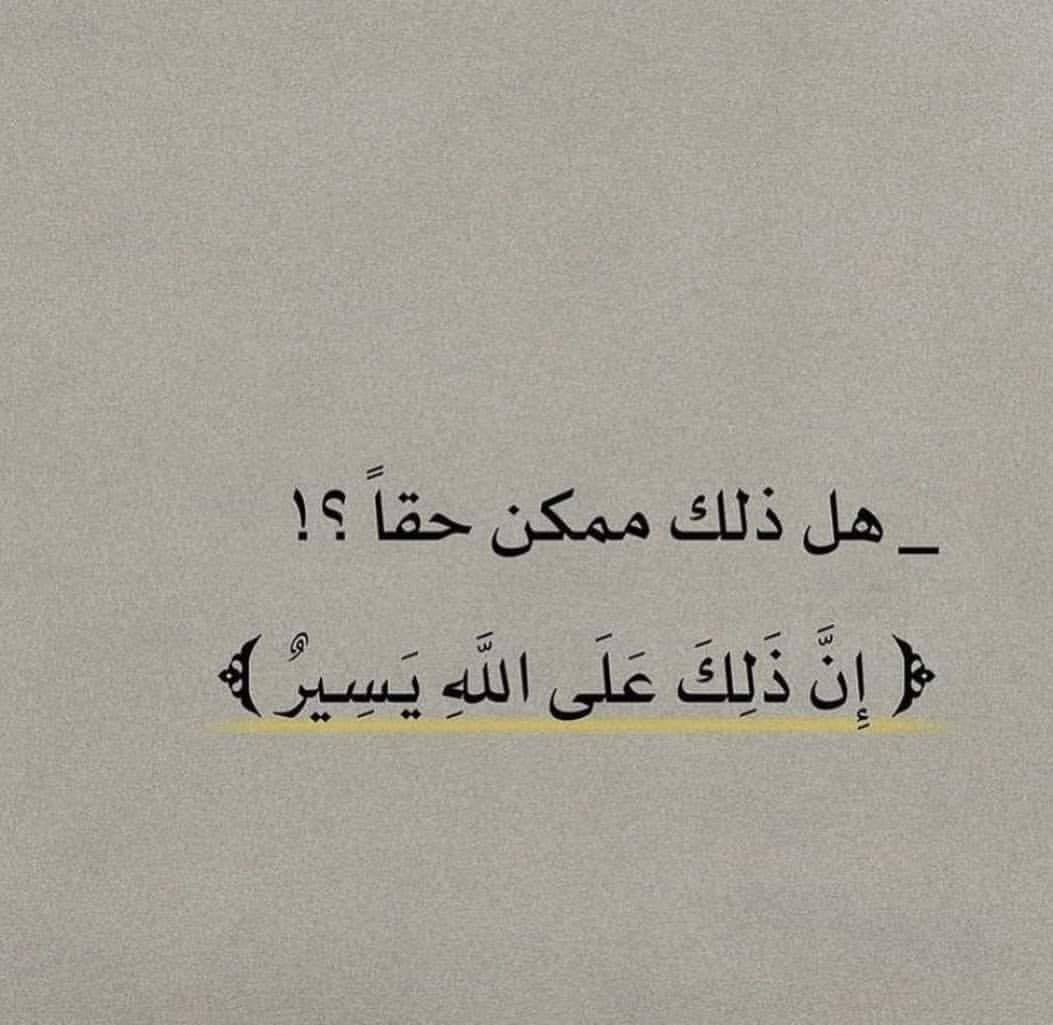 _ هل ذلك ممكن حقاً ؟!
﴿ إِنَّ ذَلِكَ عَلَى اللَّهِ يَسِيرٌ ﴾